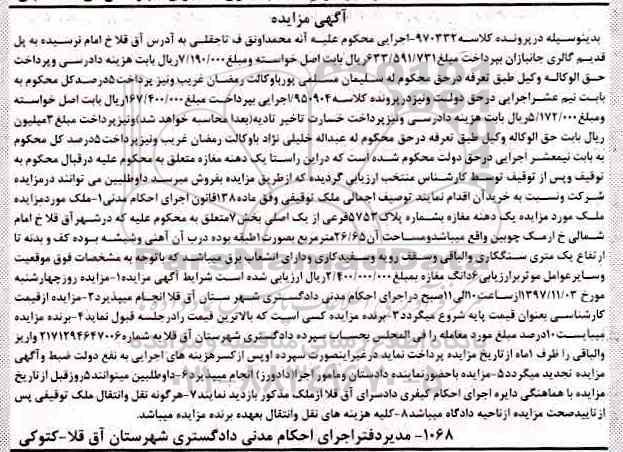 آگهی مزایده
بدینوسیله در پرونده کلاسه ۹۷۰۳۳۲-اجرایی محکوم علیه آنه محمد اونق ف تاجقلی به آدرس آق قلا خ امام نرسیده به پل
قدیم گالری جانبازان بپرداخت مبلغ ۶۳۳/۵۹۱/۷۳۱ریال بابت اصل خواسته ومبلغ ۷/۱۹۰/۰۰۰ریال بابت هزینه دادرسی وپرداخت
حق الوکاله وکیل طبق تعرفه درحق محکوم له سلیمان مسلمی پورباوکالت رمضان غریب ونیز پرداخت۵درصدکل محکوم به
بابت نیم عشراجرایی درحق دولت ونیزدرپرونده کلاسه۹۵۰۹۰۴اجرایی بپرداخت مبلغ ۱۶۷/۴۰۰/۰۰۰ریال بابت اصل خواسته
ومبلغ ۵/۱۷۲/۰۰۰ریال بابت هزینه دادرسی ونیزپرداخت خسارت تاخیر تادیه(بعدا محاسبه خواهد شد)ونیزپرداخت مبلغ ۳میلیون
ریال بابت حق الوکاله وکیل طبق تعرفه درحق محکوم له عبداله خلیلی نژاد باوکالت رمضان غریب ونیزپرداخت۵درصد کل محکوم
به بابت نیمعشر اجرایی درحق دولت محکوم شده است که دراین راستا یک دهنه مغازه متعلق به محکوم علیه درقبال محکوم به
توقیف وپس از توقیف توسط کارشناس منتخب ارزیابی گردیده که ازطریق مزایده بفروش میرسد داوطلبین می توانند درمزایده
شرکت ونسبت به خریدآن اقدام نمایند توصیف اجمالی ملک توقیفی وفق ماده۱۳۸قانون اجرای احکام مدنی۱-ملک موردمزایده
ملک مورد مزایده یک دهنه مغازه بشماره پلاک۵۷۵۳فرعی از یک اصلی بخش۷متعلق به محکوم علیه که درشهرآق قلا خ امام
شمالی خ ارمک چوبین واقع میباشدومساحت آن۲۶/۶۵مترمربع بصورت۱طبقه بوده درب آن آهنی وشیشه بوده کف و بدنه تا
ارتفاع یک متری سنگکاری والباقی وسقف رویه وسفیدکاری ودارای انشعاب برق میباشد که باتوجه به مشخصات فوق موقعیت
وسایرعوامل موثربرارزیابی۶دانگ مغازه بمبلغ۲/۴۰۰/۰۰۰/۰۰۰ریال ارزیابی شده است شرایط آگهی مزایده۱-مزایده روزچهارشنبه
مورخ ۱۳۹۷/۱۱/۰۳ازساعت۱۰الی۱۱صبح دراجرای احکام مدنی دادگستری شهرستان آق قلا انجام میپذیرد۲-مزایده ازقیمت
کارشناسی بعنوان قیمت پایه شروع میگردد۳-برنده مزایده کسی است که بالاترین قیمت رادرجلسه قبول نماید۴-برنده مزایده
میبایست۱۰درصد مبلغ مورد معامله را فی المجلس بحساب سپرده دادگستری شهرستان آق قلابه شماره۲۱۷۱۲۹۴۶۴۷۰۰۶واریز
والباقی را ظرف ۱ماه ازتاریخ مزایده پرداخت نماید درغیراینصورت سپرده اوپس ازکسرهزینه های اجرایی به نفع دولت ضبط وآگهی
مزایده تجدید میگردد۵-مزایده باحضورنماینده دادستان ومامور اجرا(دادورز) انجام میپذیرد۶-داوطلبین میتوانند۵روزقبل ازتاریخ
مزایده با هماهنگی دایره اجرای احکام کیفری دادسرای آق قلاازملک مذکور بازدید نمایند۷-هرگونه نقل وانتقال ملک توقیفی پس
ازتاییدصحت مزایده ازناحیه دادگاه میباشد۸-کلیه هزینه های نقل وانتقال بعهده برنده مزایده میباشد.
۱۰۶۸- مدیردفتراجرای احکام مدنی دادگستری شهرستان آق قلا-کتوکی